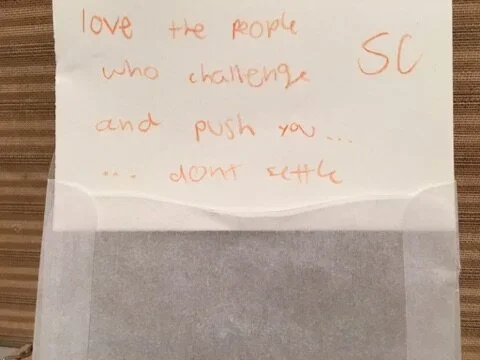 love the people
SC
who challenge
and push you...
... dont settle